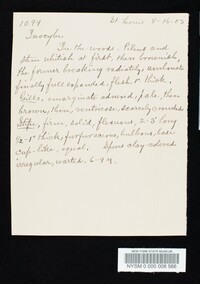 1094 St Louis 8-16-05
Inocybe.
In the woods. Pileus and
stem whitish at first, then brownish,
the former breaking radiately, umbonate
finally full expanded. flesh thick.
Gills, emarginate adnexed, pale, then
brown, thin, ventricose, scarcely crowded
Stipe, firm, solid, flexuous, 2-3' long
thick, furfuraceous, bulbous, base
cup-like, equal. Spores clay-colored
irregular, warted. 6-9 µ.
NEW YORK STATE MUSEUM
NYSM 0 000 006 566